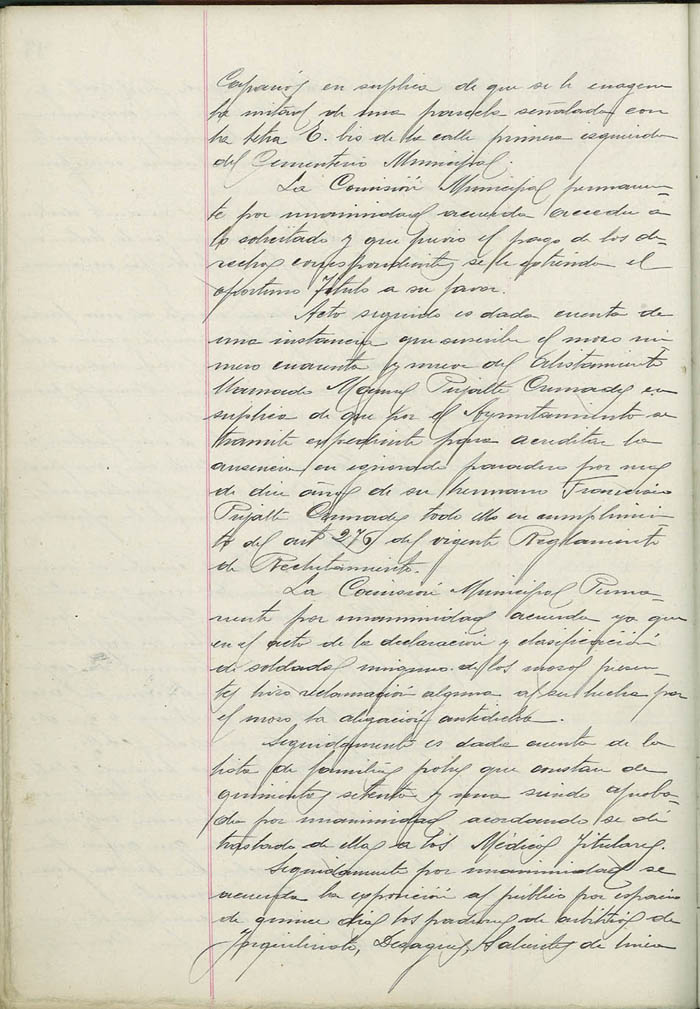 Caparrós en suplica de que se le enagene
la mitad de una parcela señalada con
la letra E. bis de la calle primera izquierda
del Cementerio Municipal.
La Comisión Municipal permanen-
te por unanimidad acuerda acceder a
lo solicitado y que previo el pago de los de-
rechos correspondientes se le extienda el
oportuno Título a su favor.
Acto seguido es dada cuenta de
una instancia que suscribe el mozo nú-
mero cuarenta y nueve del Alistamiento
llamado Manuel Pujalte Cremades en
suplica de que por el Ayuntamiento se
tramite expediente para acreditar la
ausencia en ignorado paradero por mas
de diez años de su hermano Francisco
Pujalte Cremades todo ello en cumplimien-
to del artº 276 del vigente Reglamento
de Reclutamiento.
La Comisión Municipal Perma-
nente por unanimidad acuerda ya que
en el acto de la declaración y clasificación
de soldados ninguno de los mozos presen-
tes hizo reclamación alguna a ser hecha por
el mozo la alegación antedicha.
Seguidamente es dada cuenta de la
lista de familias pobres que constan de
quinientas setenta y una siendo aproba-
da por unanimidad acordando se dé
traslado de ellas a los Médicos Titulares.
Seguidamente por unanimidad se
acuerda la exposición al público por espacio
de quince días los padrones de arbitrios de
Inquilinato, Desagües, Salientes de línea